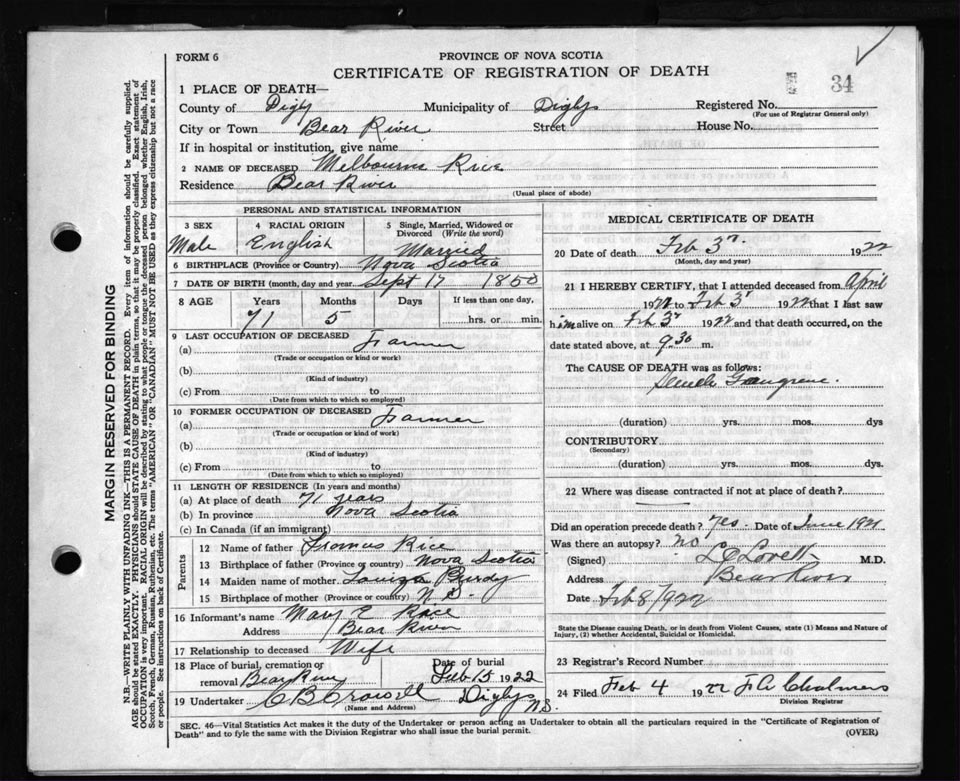 FORM 6
PROVINCE OF NOVA SCOTIA
CERTIFICATE OF REGISTRATION OF DEATH
34
1 PLACE OF DEATH—
County of Digby Municipality of Digby Registered No.
(For use of Registrar General only)
City or Town Bear River Street House No.
If in hospital or institution, give name
2 NAME OF DECEASED Melbourne Rice
Residence Bear River
(Usual place of abode)
PERSONAL AND STATISTICAL INFORMATION
3 SEX 4 RACIAL ORIGIN 5 Single, Married, Widowed or Divorced (Write the word)
Male English Married
6 BIRTHPLACE (Province or Country) Nova Scotia
7 DATE OF BIRTH (month, day and year) Sept 17 1850
8 AGE Years Months Days If less than one day,
71 5 hrs. or min.
9 LAST OCCUPATION OF DECEASED
(a) Farmer
(Trade or occupation or kind or work)
(b)
(Kind of industry)
(c) From to
(Date from which to which so employed)
10 FORMER OCCUPATION OF DECEASED
(a) Farmer
(Trade or occupation or kind of work)
(b)
(Kind of industry)
(c) From to
(Date from which to which so employed)
11 LENGTH OF RESIDENCE (In years and months)
(a) At place of death 71 years
(b) In province Nova Scotia
(c) In Canada (if an immigrant)
Parents
12 Name of father Thomas Rice
13 Birthplace of father (Province or country) Nova Scotia
14 Maiden name of mother Louiza Purdy
15 Birthplace of mother (Province or country) N.S.
16 Informant's name Mary E Race
Address Bear River
17 Relationship to deceased Wife
18 Place of burial, cremation or removal Bear River Date of burial Feb 5 1922
19 Undertaker C B Crowell Digby N.S.
(Name and Address)
MEDICAL CERTIFICATE OF DEATH
20 Date of death Feb 3rd 1922
(Month, day and year)
21 I HEREBY CERTIFY, that I attended deceased from April
to Feb 3rd 1922 that I last saw
him alive on Feb 3rd 1922 and that death occurred, on the
date stated above, at 9.30 m.
The CAUSE OF DEATH was as follows:
Senile Gangrene.
(duration) yrs. mos. dys
CONTRIBUTORY
(Secondary)
(duration) yrs. mos. dys.
22 Where was disease contracted if not at place of death?
Did an operation precede death? Yes. Date of June 1921
Was there an autopsy? No
(Signed) L C Lovett M.D.
Address Bear River
Date Feb 8/1922
State the Disease causing Death, or in death from Violent Causes, state (1) Means and Nature of Injury, (2) whether Accidental, Suicidal or Homicidal.
23 Registrar's Record Number
24 Filed Feb 4 1922 F A Chalmers
Division Registrar
SEC. 46—Vital Statistics Act makes it the duty of the Undertaker or person acting as Undertaker to obtain all the particulars required in the "Certificate of Registration of
Death" and to fyle the same with the Division Registrar who shall issue the burial permit.
(OVER)
MARGIN RESERVED FOR BINDING
N.B.—WRITE PLAINLY WITH UNFADING INK—THIS IS A PERMANENT RECORD. Every item of information should be carefully supplied.
AGE should be stated EXACTLY. PHYSICIANS should STATE CAUSE OF DEATH in plain terms, so that it may be properly classified. Exact statement of
OCCUPATION is very important. RACIAL ORIGIN will be described by stating to what people or tongue the deceased person belonged whether English, Irish,
Scotch, French, German, Russian, Ruthenian, etc. The terms "AMERICAN" OR "CANADIAN" MUST NOT BE USED as they express citizenship but not a race
or people. See instructions on back of Certificate.